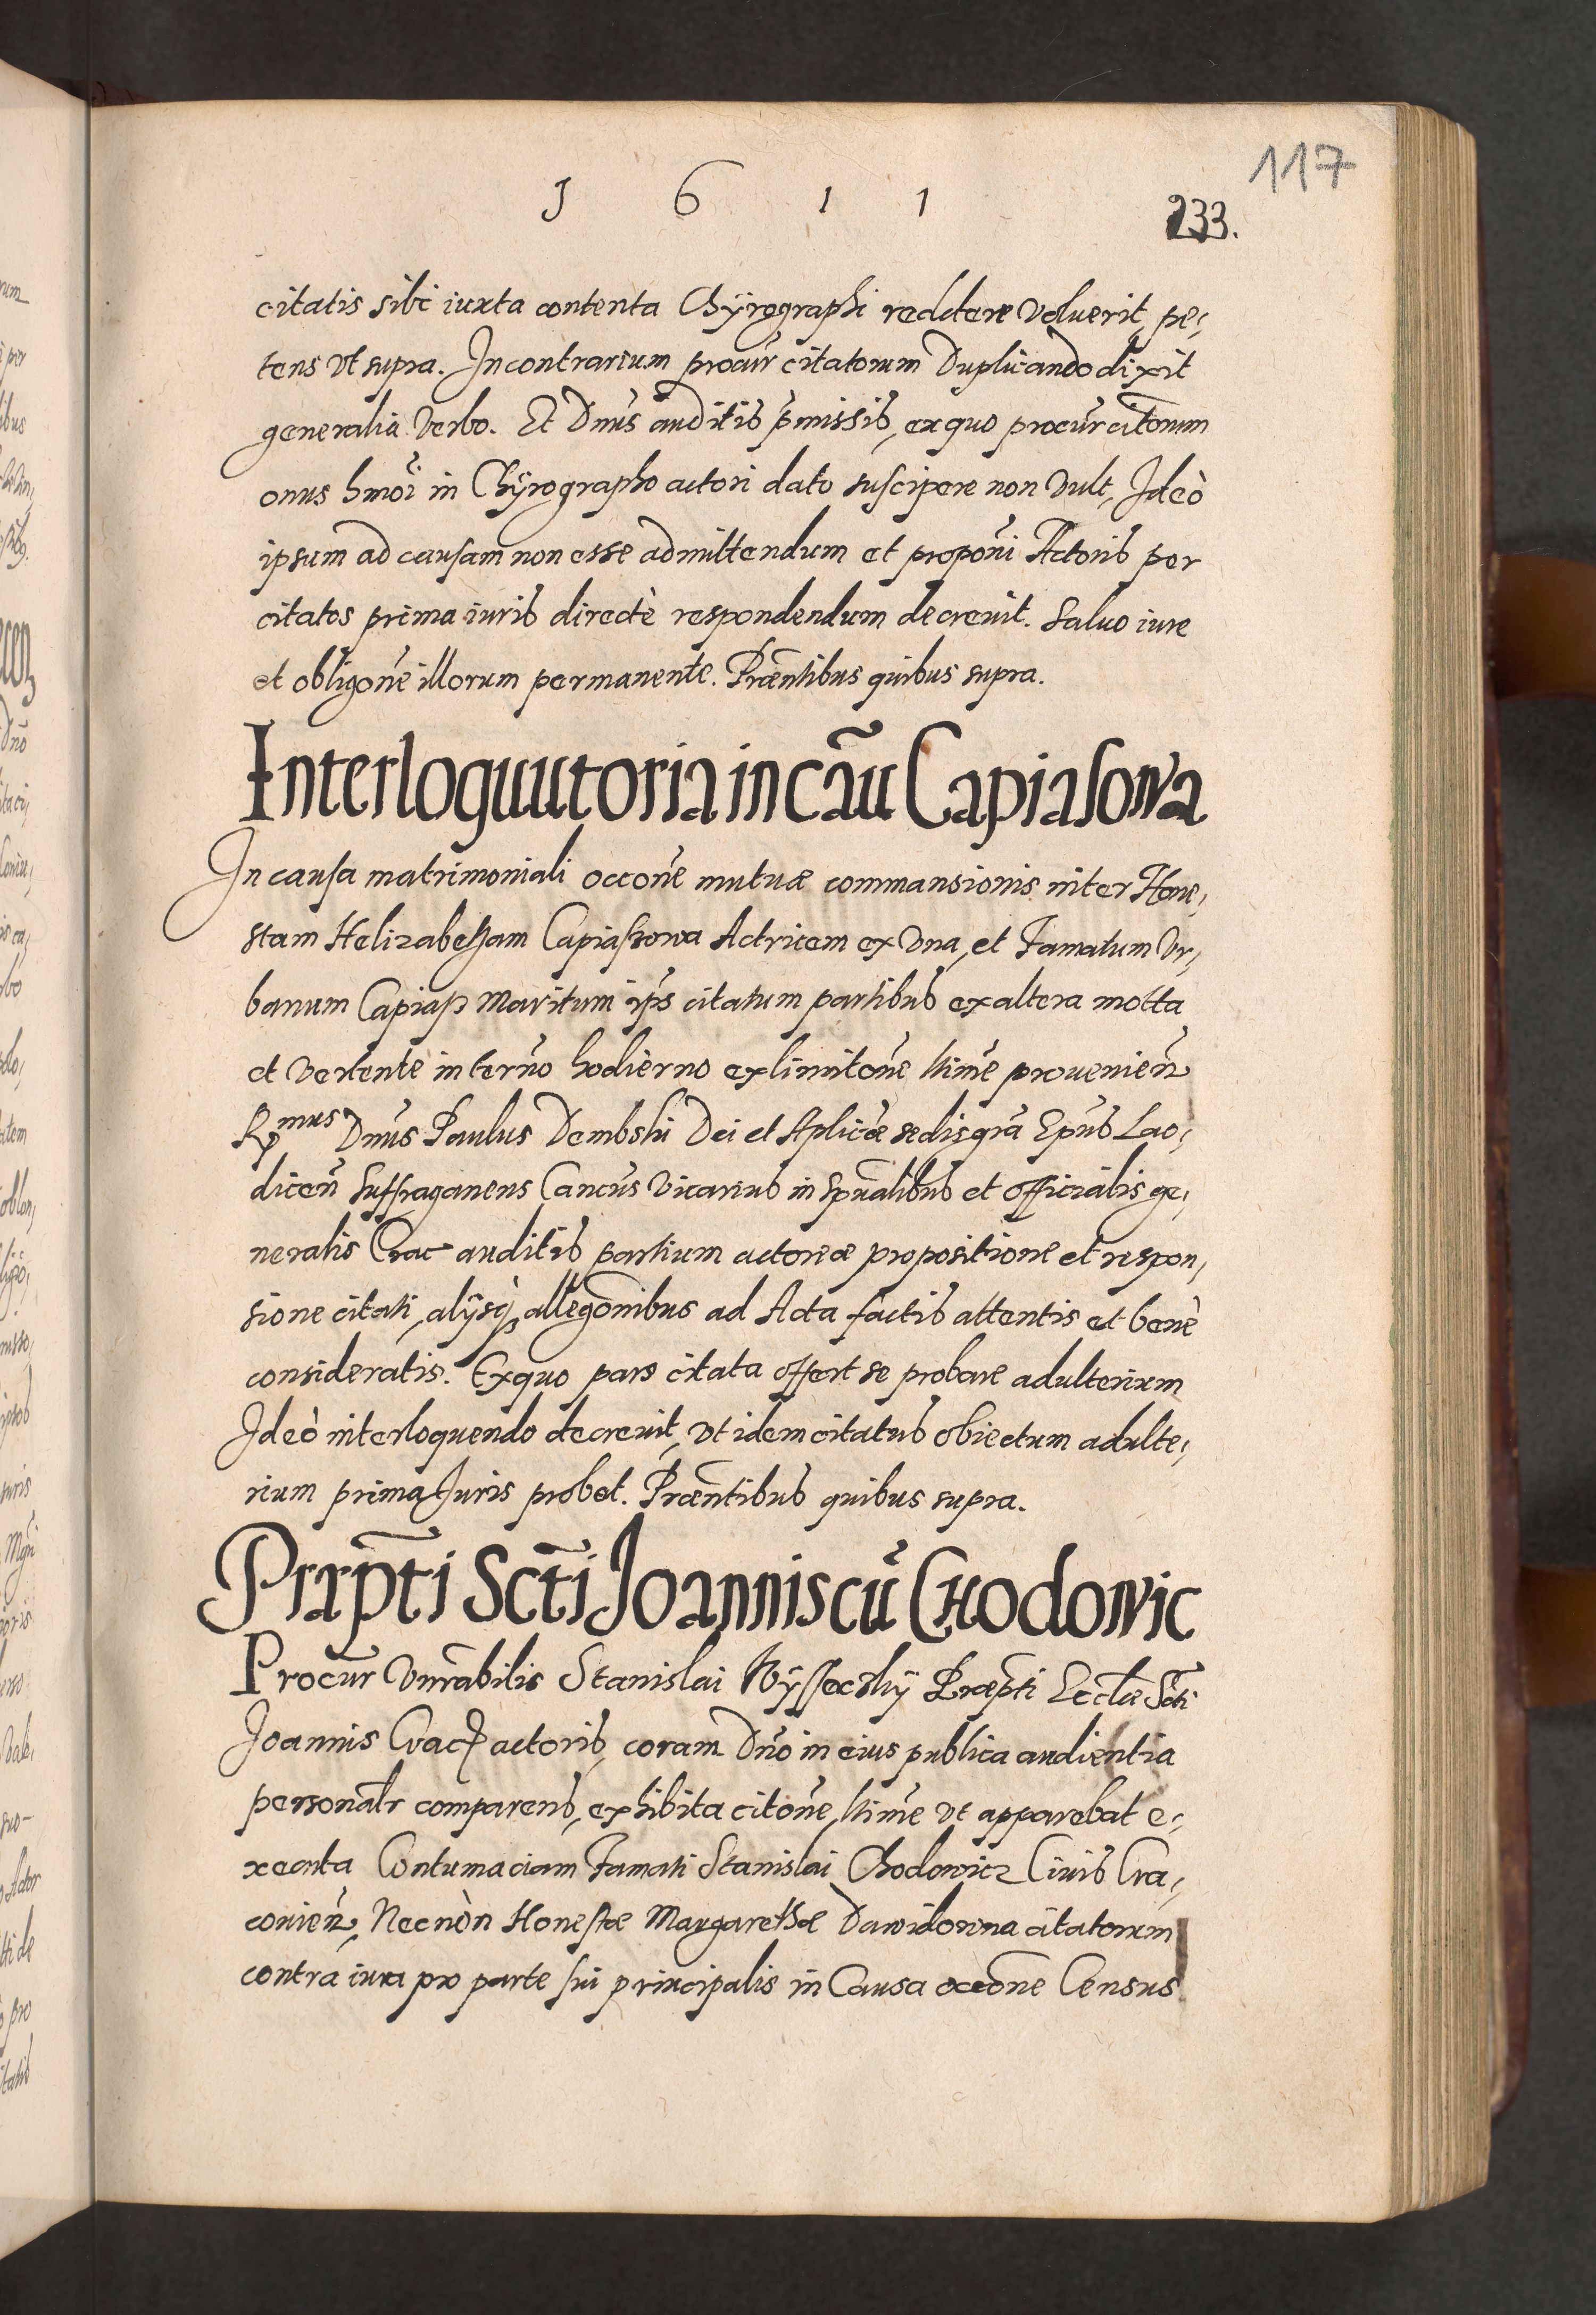 117
1 6 1 1
233.
citatis sibi iuxta contenta Chÿrographi reddere voluerit, pe,
tens vt supra. In contrarium procūr citatorum Duplicando dixit
generalia verbo. Et Dnūs auditis p̄missis, ex quo procūr citōrum
onus hmōi in Chÿrographo actori dato suscipere non vult, Ideò
ipsum ad causam non esse admittendum et propōni Actoris per
citatos prima iuris directè respondendum decreuit. Saluo iure
et obligōne illorum permanente. Præntibus quibus supra.
Interloquutoria in cāu Capiasowa
In causa matrimoniali occōne mutuæ commansionis inter Hone,
stam Helizabetham Capiaszowa Actricem ex vna, et Famatum Vr,
banum Capiasz Maritum ip̄s citatum partibus ex altera motta
et vertente in termō hodierno ex limitōne ltimē prouenieñ
Rmus Dnūs Paulus Dembski Dei et Aplicæ sedis grā Epūs Lao,
diceñ Suffraganeus Cancūs Vicarius in Spūalibus et officialis ge,
neralis Crac auditis partium actoreæ propositione et respon,
sione citati, alÿsq, allegōnibus ad Acta factis attentis et benè
consideratis. Ex quo pars citata offert se probare adulterium
Ideò interloquendo decreuit, vt idem citatus obiectum adulte,
rium prima Iuris probet. Præntibus quibus supra.
Præpti Scti Joannis cū Chodowic
Procūr Vnrābilis Stanislai Wÿssoczkÿ Præpti Ecclæ Scti
Joannis Crac actoris, coram Dnō in eius publica audientia
personalr comparens, exhibita citōne, ltimē vt apparebat e,
xecuta Contumaciam Famati Stanislai Chodowicz Ciuis Cra,
couieñ, Necnòn Honestæ Margarethæ Dawidowna citatorum
contra iura pro parte sui principalis in Causa occōne Census